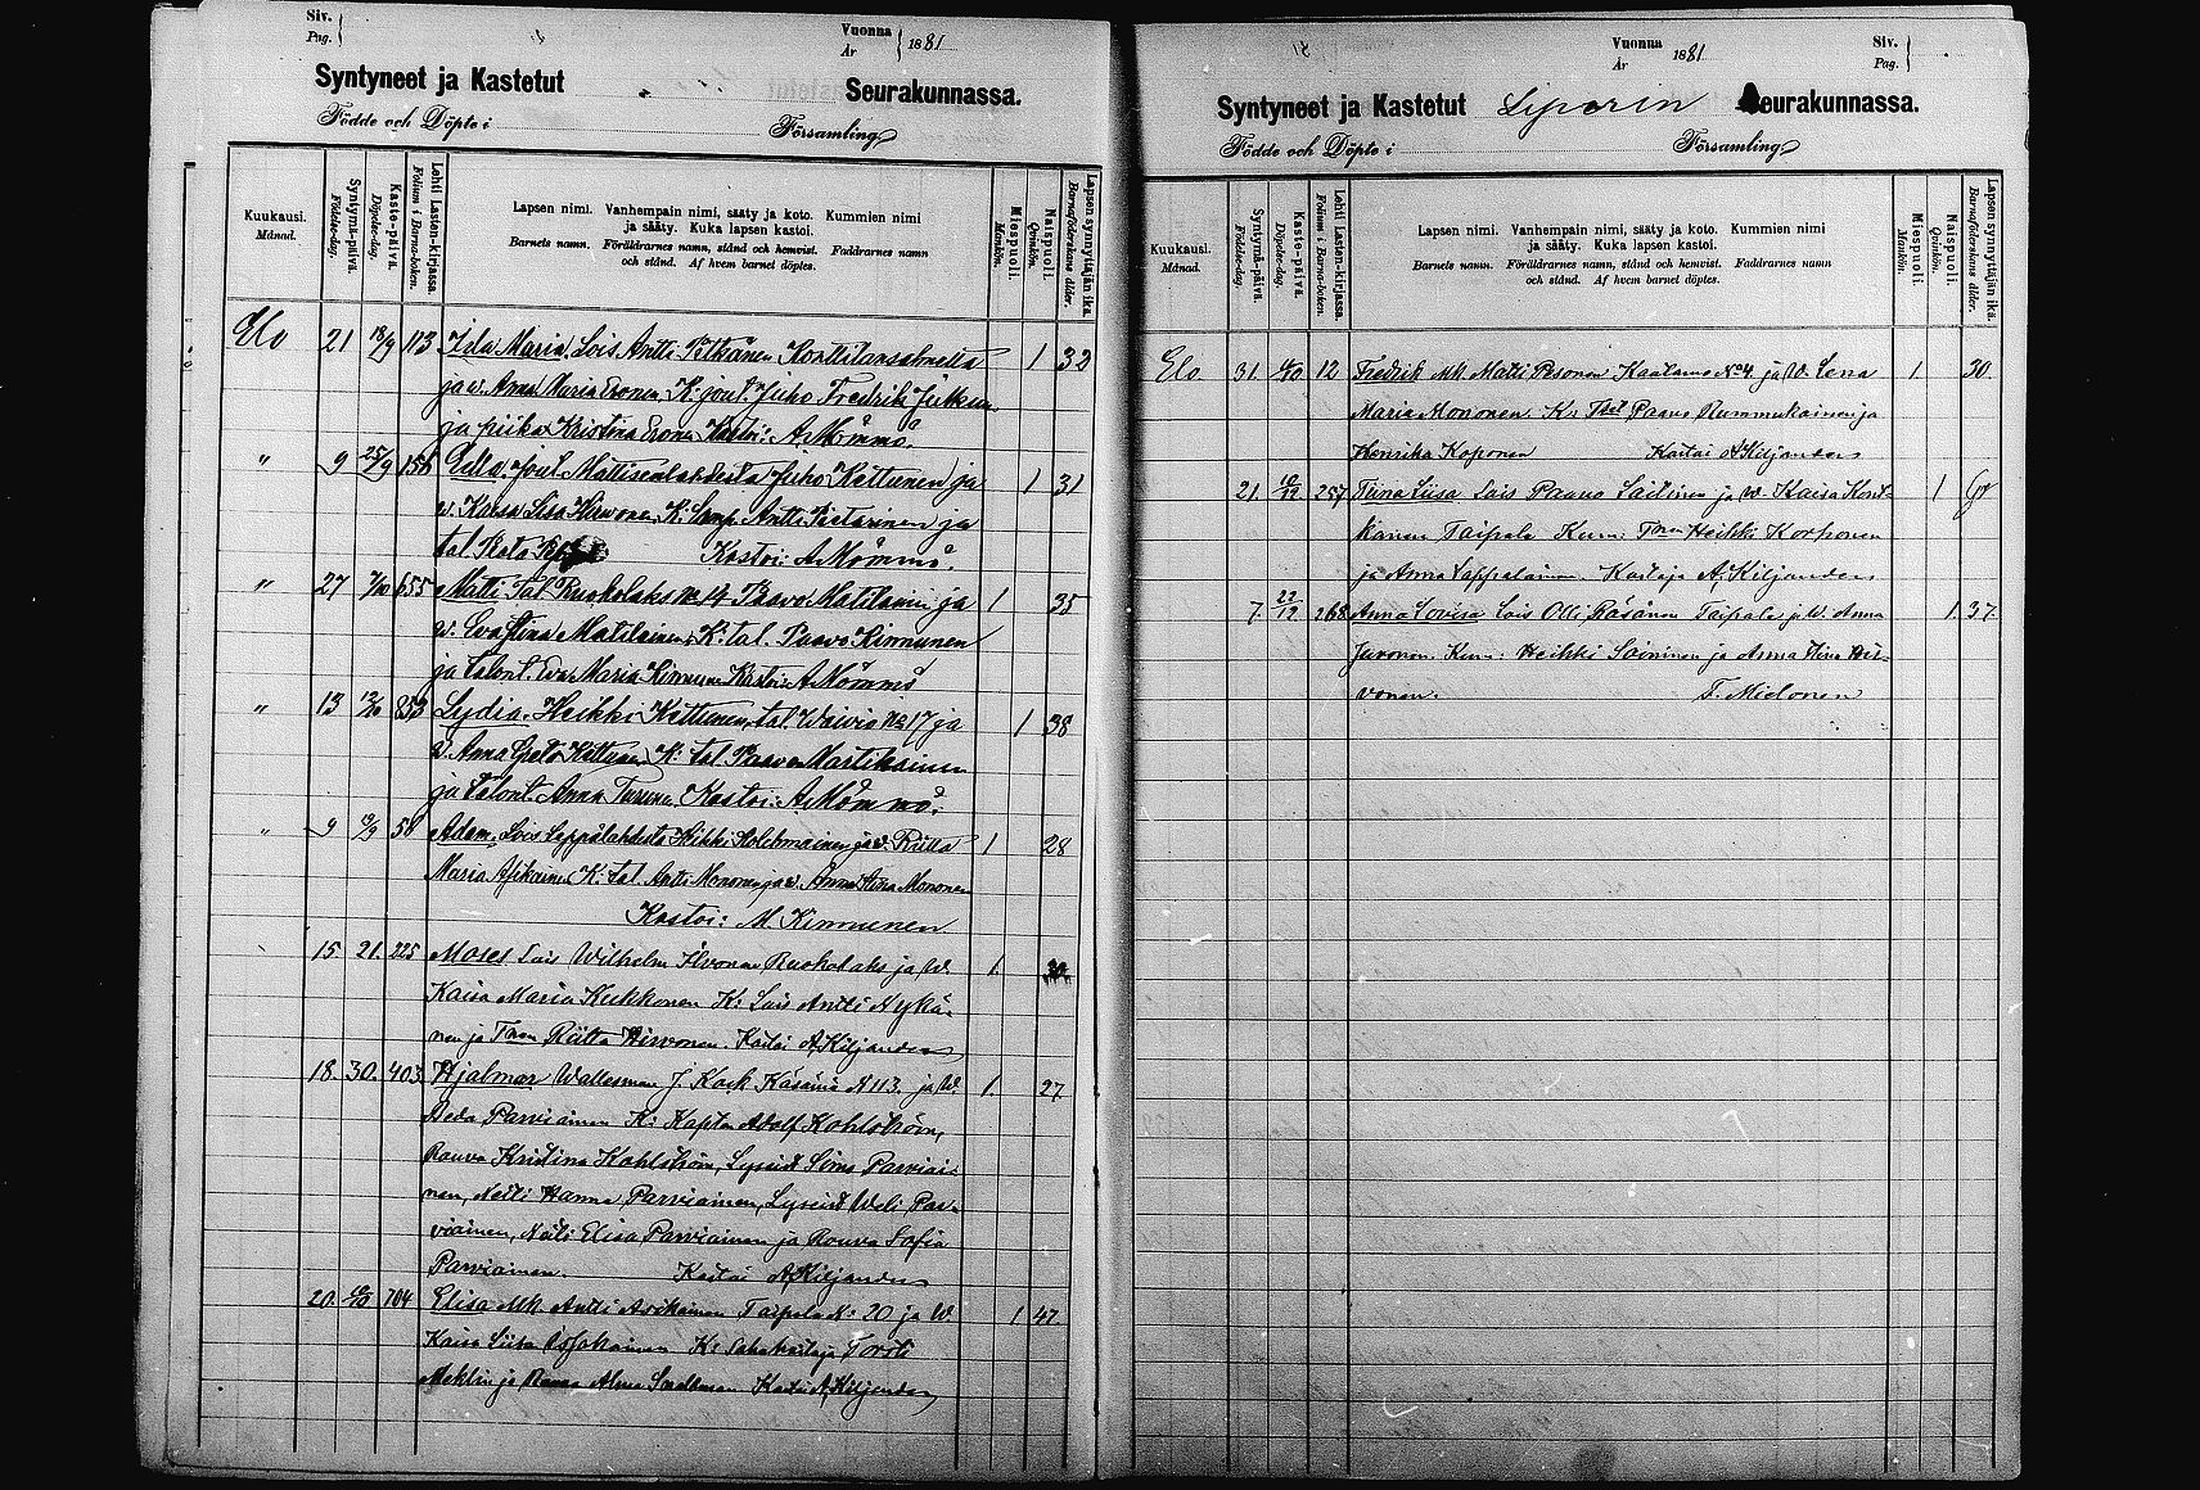 Siv.
Pag.
Vuonna
År
1881
Syntyneet ja Kastetut Seurakunnassa.
Födde och Döpte i Församling
Kuukausi.
Månad.
Syntymä-päivä.
Födelse-dag.
Kaste-päivä.
Döpelse-dag.
Lehti Lasten-kirjassa.
Folium i Barna-boken.
Lapsen nimi. Vanhempain nimi, sääty ja koto. Kummien nimi
ja sääty. Kuka lapsen kastoi.
Barnets namn. Föräldrarnes namn, stånd och hemvist. Faddrarnes namn
och stånd. Af hvem barnet döptes.
Miespuoli.
Mankön.
Naispuoli.
Qvinkön.
Lapsen synnyttäjän ikä.
Barnaföderskans ålder.
Elo 21 18/9 113 Ida Maria. Lois Antti Pitkänen Konttilansalmelta 1 32
ja w. Anna Maria Eronen K: jout. Juho Fredrik
ja piika Kristina Eronen Kastoi: A. Mömmö.
" 9 25/9 156 Edla. jout. Mattisenlahdesta Juho Kettunen ja 1 31
w. Kaisa Lisa Hirvonen. K: Antti Pietarinen ja
tal. Kastoi: A. Mömmö.
" 27 655 Matti. Tal. Ruokolaks No 14 Paavo Matilainen ja 1 35
w. Eva Stina Matilainen K: tal. Paavo Kinnunen
ja talont. Eva Maria Kinnunen Kastoi: A. Mömmö
" 13 853 Lydia. Heikki Kettunen, tal. Waivio No 17 ja 1 38
w. Anna Greta Kettunen K: tal. Paavo Martikainen
ja talont. Anna Turunen. Kastoi: A. Mömmö.
" 9 58 Adam. Lois Leppälahdesta Heikki Holehmainen ja w. Riitta 1 28
Maria Asikainen K: tal. Antti Mononen ja w. Anna Stina Mononen
Kastoi: M. Kinnunen
15. 21. 225 Moses Lois Wilhelm Ilvonen Ruokolaks ja W. 1.
Kaisa Maria Kukkonen K: Lois Antti Nykä-
nen ja Riitta Hirvonen. Kastoi A. Kiljander
18. 30. 403 Hjalmar Wallesman J. Kock Käsämä N 113. ja W. 1. 27.
Aeda Parviainen K: Kapten Adolf Kohlström,
Rouva Kristina Kohlström, Lyseist Simo Parviai-
nen, Neiti Hanna Parviainen, Lyseist Weli Par-
viainen, Neiti Elisa Parviainen ja Rouva Sofia
Parviainen. Kastoi A. Kiljander
20. 704 Elisa Mk Antti Asikainen Taipale N: 20 ja W. 1 47.
Kaisa Liisa K: Torsti
Meklin ja Rouva Alma Smedman Kastoi A. Kiljander
Vuonna
År
1881
Siv.
Pag.
Syntyneet ja Kastetut Liperin Seurakunnassa.
Födde och Döpte i Församling
Kuukausi.
Månad.
Syntymä-päivä.
Födelse-dag.
Kaste-päivä.
Döpelse-dag.
Lehti Lasten-kirjassa.
Folium i Barna-boken.
Lapsen nimi. Vanhempain nimi, sääty ja koto. Kummien nimi
ja sääty. Kuka lapsen kastoi.
Barnets namn. Föräldrarnes namn, stånd och hemvist. Faddrarnes namn
och stånd. Af hvem barnet döptes.
Miespuoli.
Mankön.
Naispuoli.
Qvinkön.
Lapsen synnyttäjän ikä.
Barnaföderskans ålder.
Elo. 31. 12 Fredrik Mk. Matti Pesonen Kaatamo No 4. ja W. Lena 1. 30.
Maria Mononen. K: Paavo Rummukainen ja
Henrika Koponen Kastoi A Kiljander
21. 257 Tiina Liisa Lois Paavo Laitinen ja W. Kaisa Kont- 1
kanen Taipale Kum: Heikki Korhonen
ja Anna Lappalainen. Kastaja A. Kiljander
7. 22/12 268 Anna Lovisa Lois Olli Räsänen Taipale ja W. Anna 1. 37.
Juvonen. Kum: Heikki Soininen ja Anna Stina Hir-
vonen. T. Mielonen